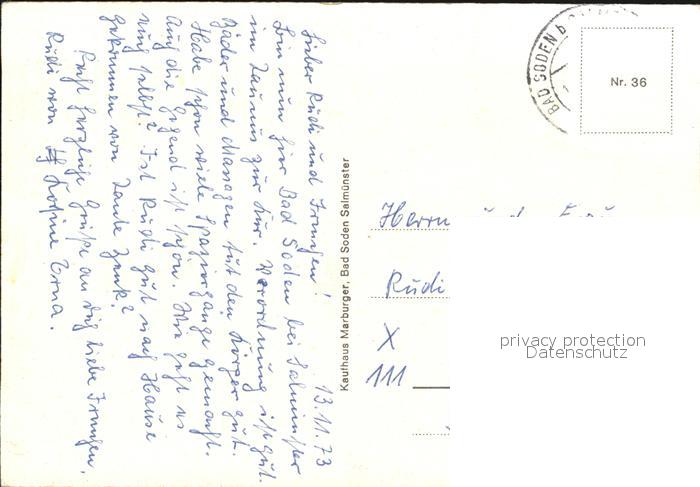 13.11.73
Lieber Rudi und Irmchen!
Bin nun hier Bad Soden bei Salmünster
im Taunus zur Kur. Verordnung ist gut.
Bäder und Massagen tut den Körper gut.
Habe schon viele Spaziergänge gemacht.
Auch die Gegend ist schön. Wie geht es
selbst? Ist Rudi gut nach Hause
gekommen von Tante
herzliche Grüße an dich liebe Irmchen,
Rudi von Kosine Erna.
Kaufhaus Marburger, Bad Soden Salmünster
BAD SODEN b
Nr. 36
Herrn
Rudi
X
111
privacy protection
Datenschutz